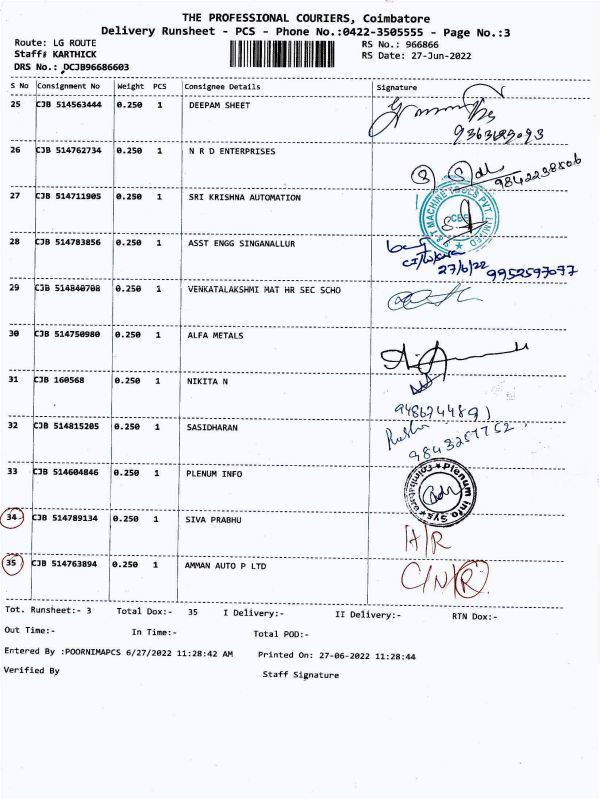 THE PROFESSIONAL COURIERS, Coimbatore
Delivery Runsheet - PCS - Phone No.:0422-3505555 - Page No.:3
Route: LG ROUTE
RS No.: 966866
Staff# KARTHICK
RS Date: 27-Jun-2022
DRS No.: DCJB96686603
S No Consignment No Weight PCS Consignee Details Signature
25 CJB 514563444 0.250 1 DEEPAM SHEET
26 CJB 514762734 0.250 1 N R D ENTERPRISES
27 CJB 514711905 0.250 1 SRI KRISHNA AUTOMATION
MACHINE TOOLS PVT. LIMITED
CBE
28 CJB 514783856 0.250 1 ASST ENGG SINGANALLUR
27/6/22 9952597077
29 CJB 514840708 0.250 1 VENKATALAKSHMI MAT HR SEC SCHO
30 CJB 514750980 0.250 1 ALFA METALS
31 CJB 160568 0.250 1 NIKITA N
32 CJB 514815205 0.250 1 SASIDHARAN
9843257752
33 CJB 514604846 0.250 1 PLENUM INFO
Plenum Info Sys
34 CJB 514789134 0.250 1 SIVA PRABHU
35 CJB 514763894 0.250 1 AMMAN AUTO P LTD
C/N/R
Tot. Runsheet:- 3 Total Dox:- 35 I Delivery:- II Delivery:- RTN Dox:-
Out Time:- In Time:- Total POD:-
Entered By :POORNIMAPCS 6/27/2022 11:28:42 AM Printed On: 27-06-2022 11:28:44
Verified By Staff Signature